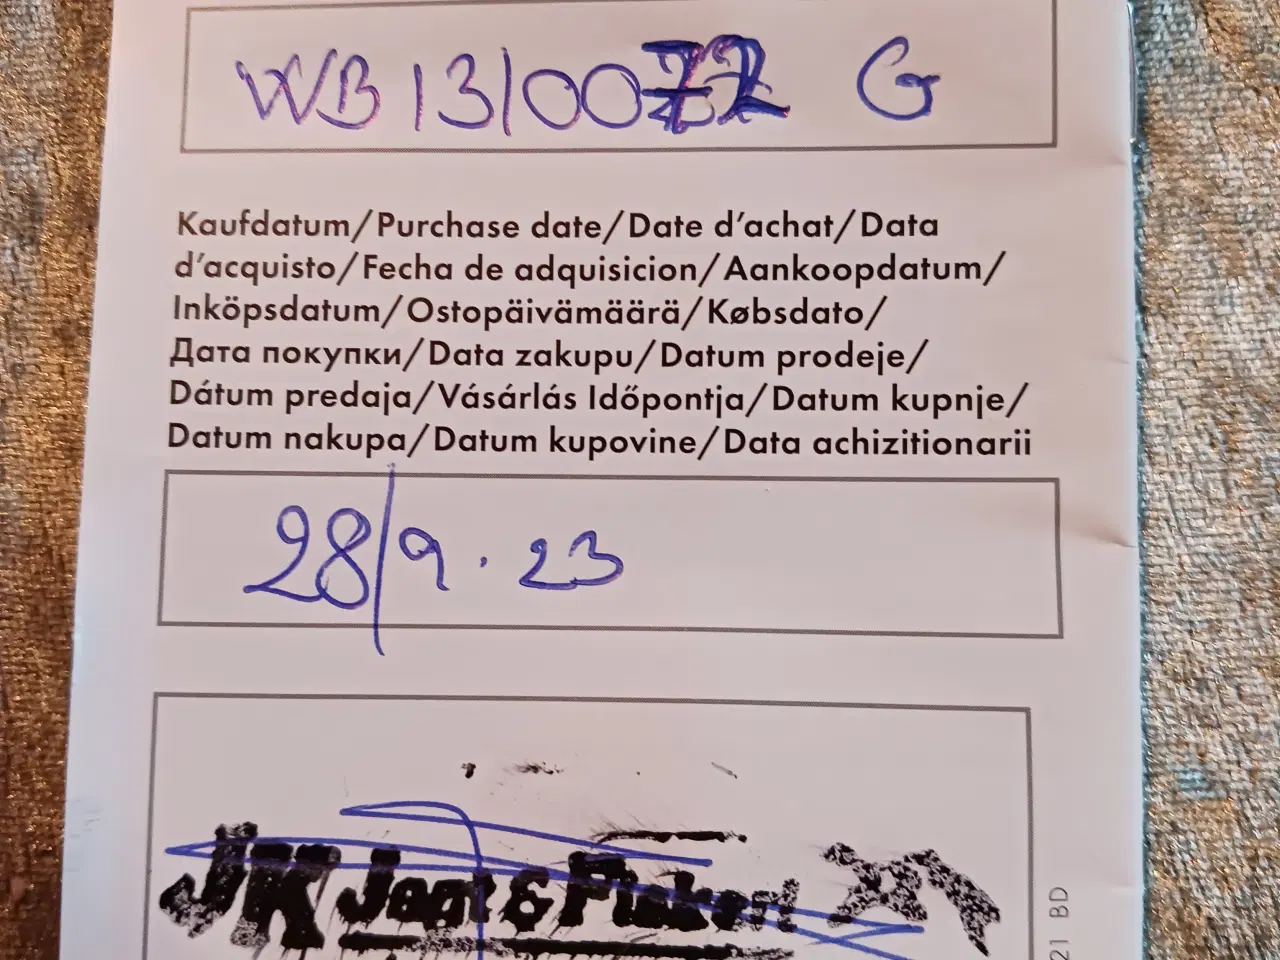 WB 13/0072 G
Kaufdatum/Purchase date/Date d’achat/Data
d’acquisto/Fecha de adquisicion/Aankoopdatum/
Inköpsdatum/Ostopäivämäärä/Købsdato/
Дата покупки/Data zakupu/Datum prodeje/
Dátum predaja/Vásárlás Időpontja/Datum kupnje/
Datum nakupa/Datum kupovine/Data achizitionarii
28/9.23
JK Jagt & Fiskeri
21 BD